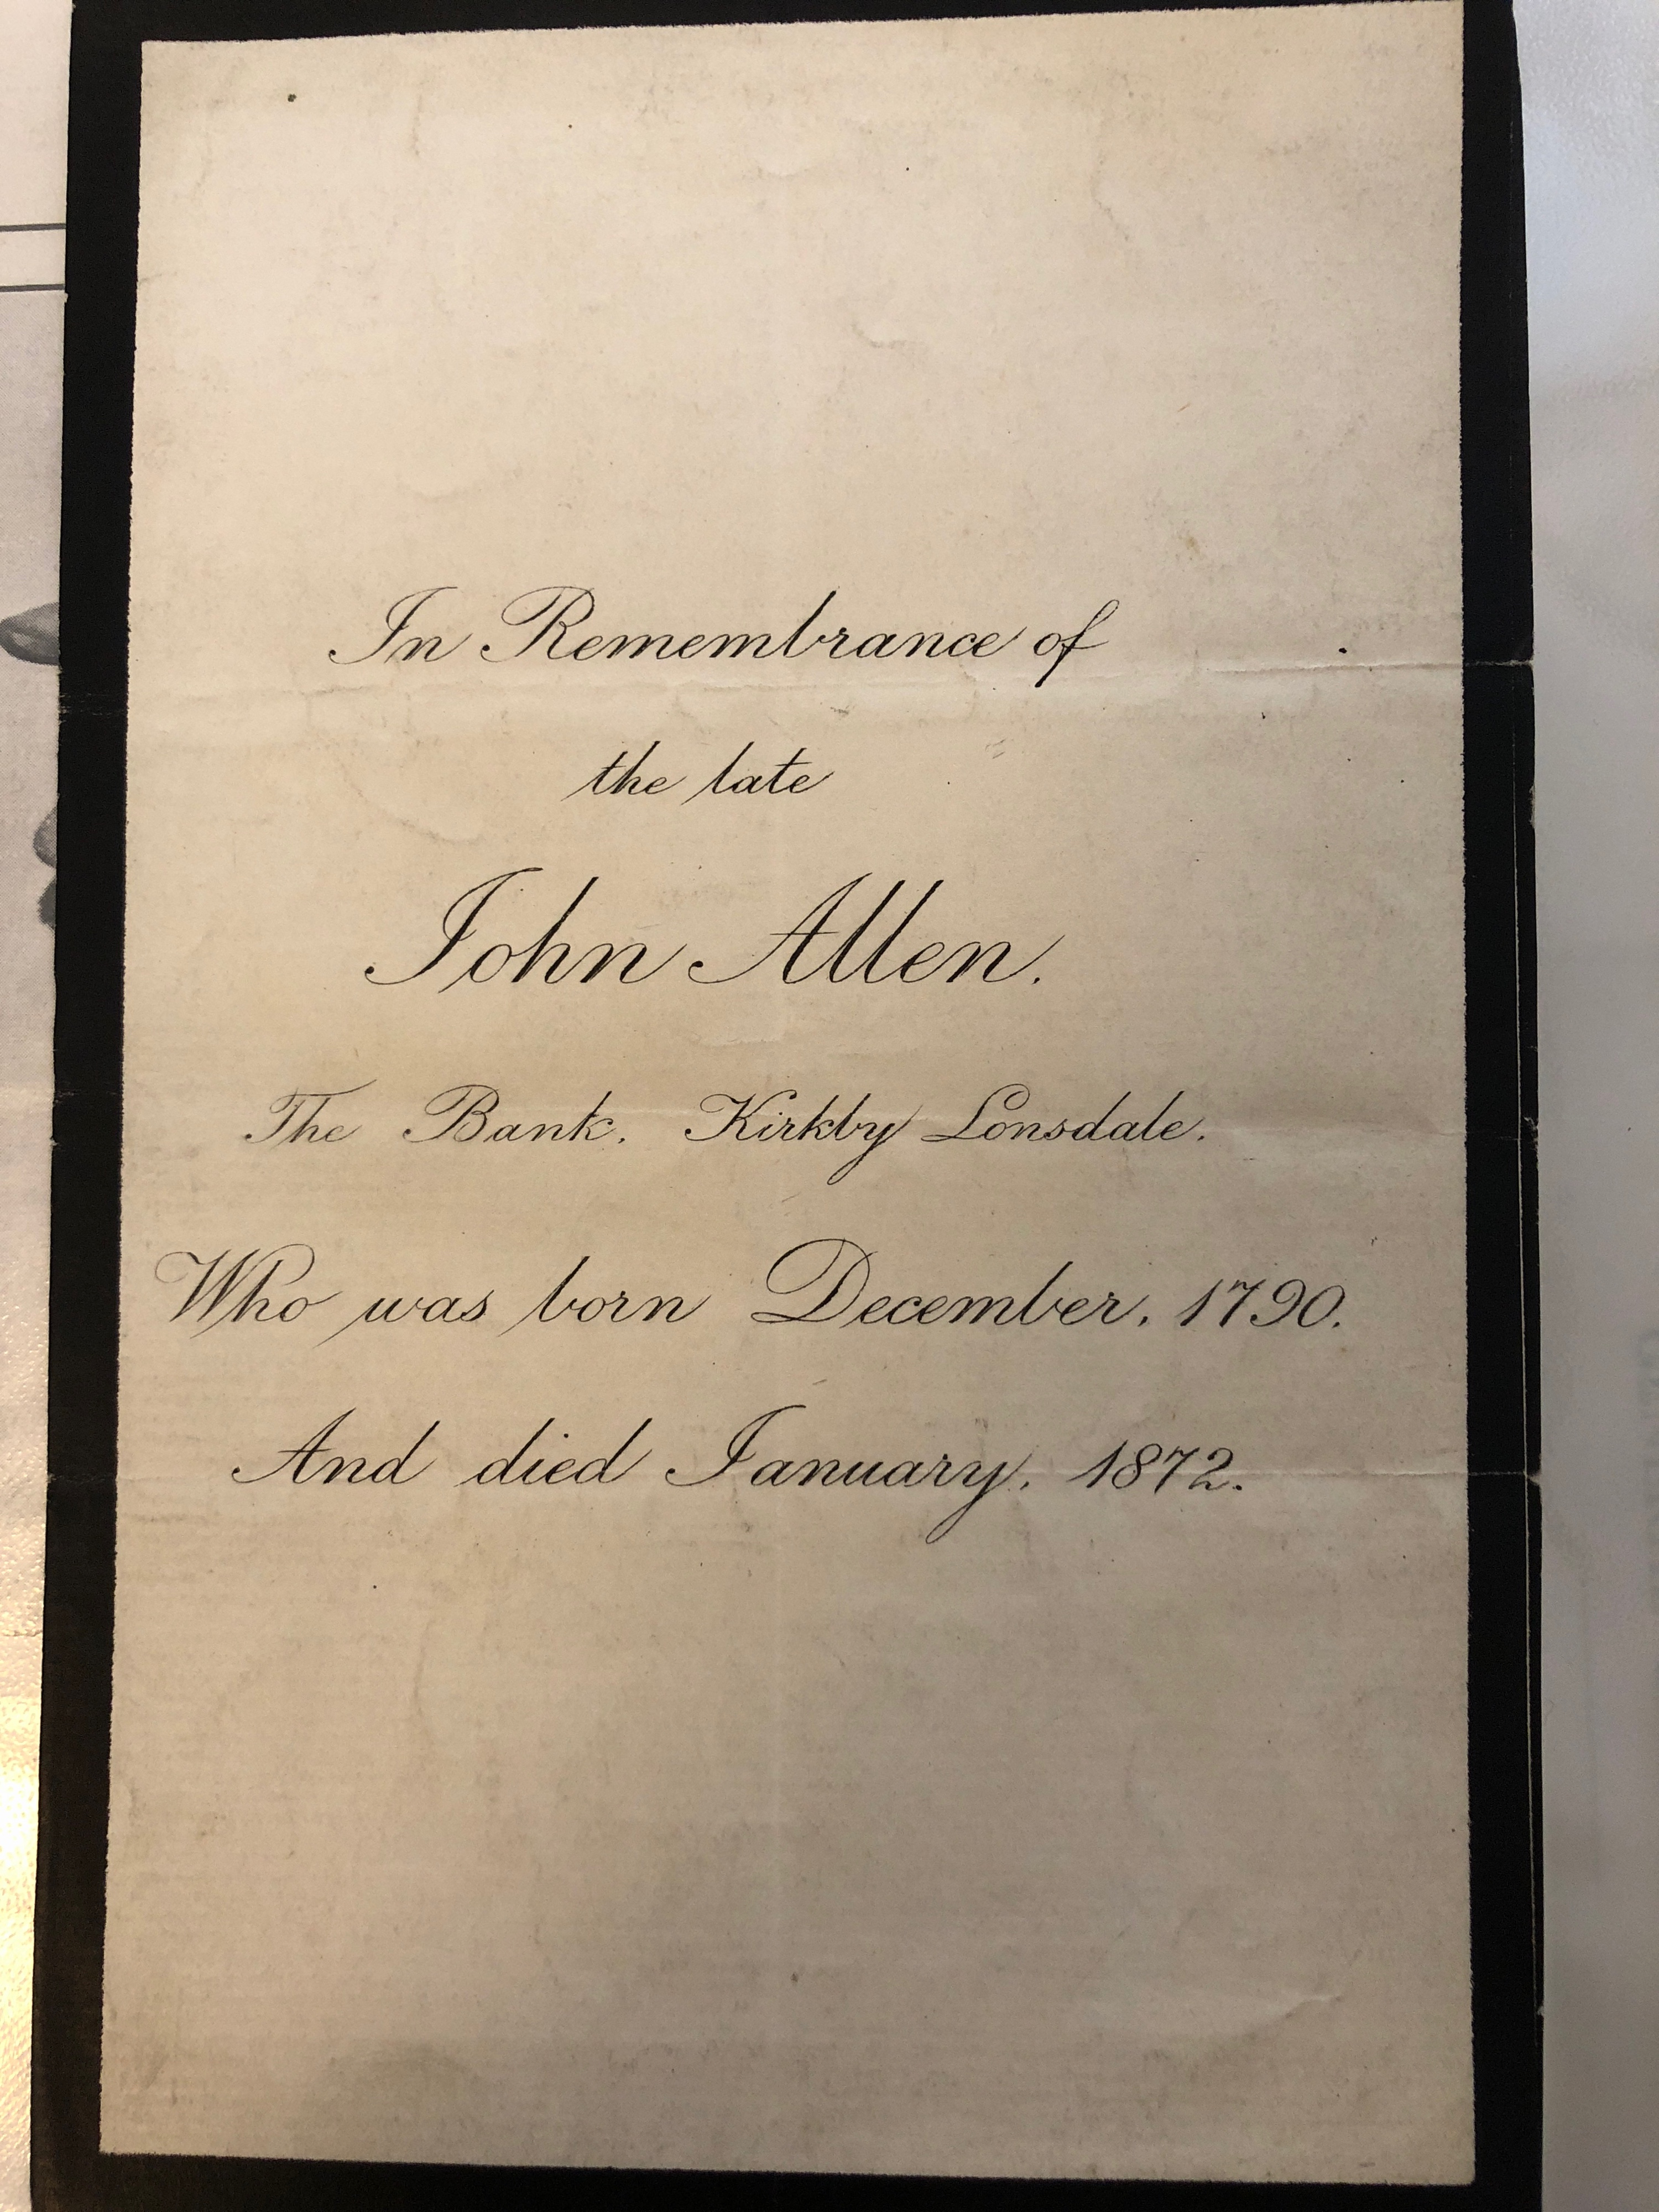 In Remembrance of
the late
John Allen.
The Bank. Kirkby Lonsdale.
Who was born December. 1790.
And died January. 1872.